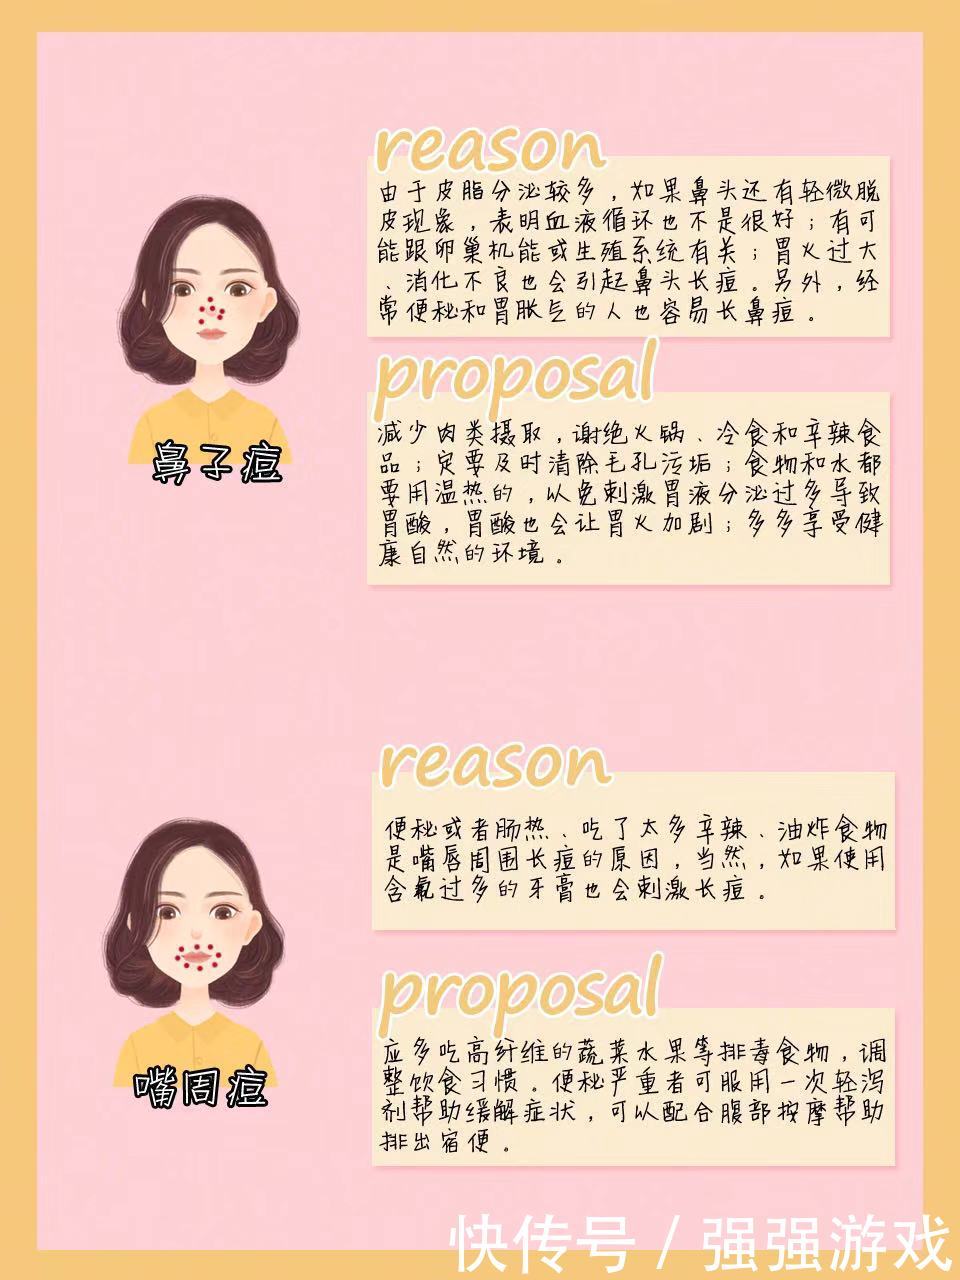 reason
由于皮脂分泌较多，如果鼻头还有轻微脱
皮现象，表明血液循环也不是很好；有可
能跟卵巢机能或生殖系统有关；胃火过大
、消化不良也会引起鼻头长痘。另外，经
常便秘和胃胀气的人也容易长鼻痘。
proposal
减少肉类摄取，谢绝火锅、冷食和辛辣食
品；定要及时清除毛孔污垢；食物和水都
要用温热的，以免刺激胃液分泌过多导致
胃酸，胃酸也会让胃火加剧；多多享受健
康自然的环境。
鼻子痘
reason
便秘或者肠热、吃了太多辛辣、油炸食物
是嘴唇周围长痘的原因，当然，如果使用
含氟过多的牙膏也会刺激长痘。
proposal
应多吃高纤维的蔬菜水果等排毒食物，调
整饮食习惯。便秘严重者可服用一次轻泻
剂帮助缓解症状，可以配合腹部按摩帮助
排出宿便。
嘴周痘
快传号 / 强强游戏